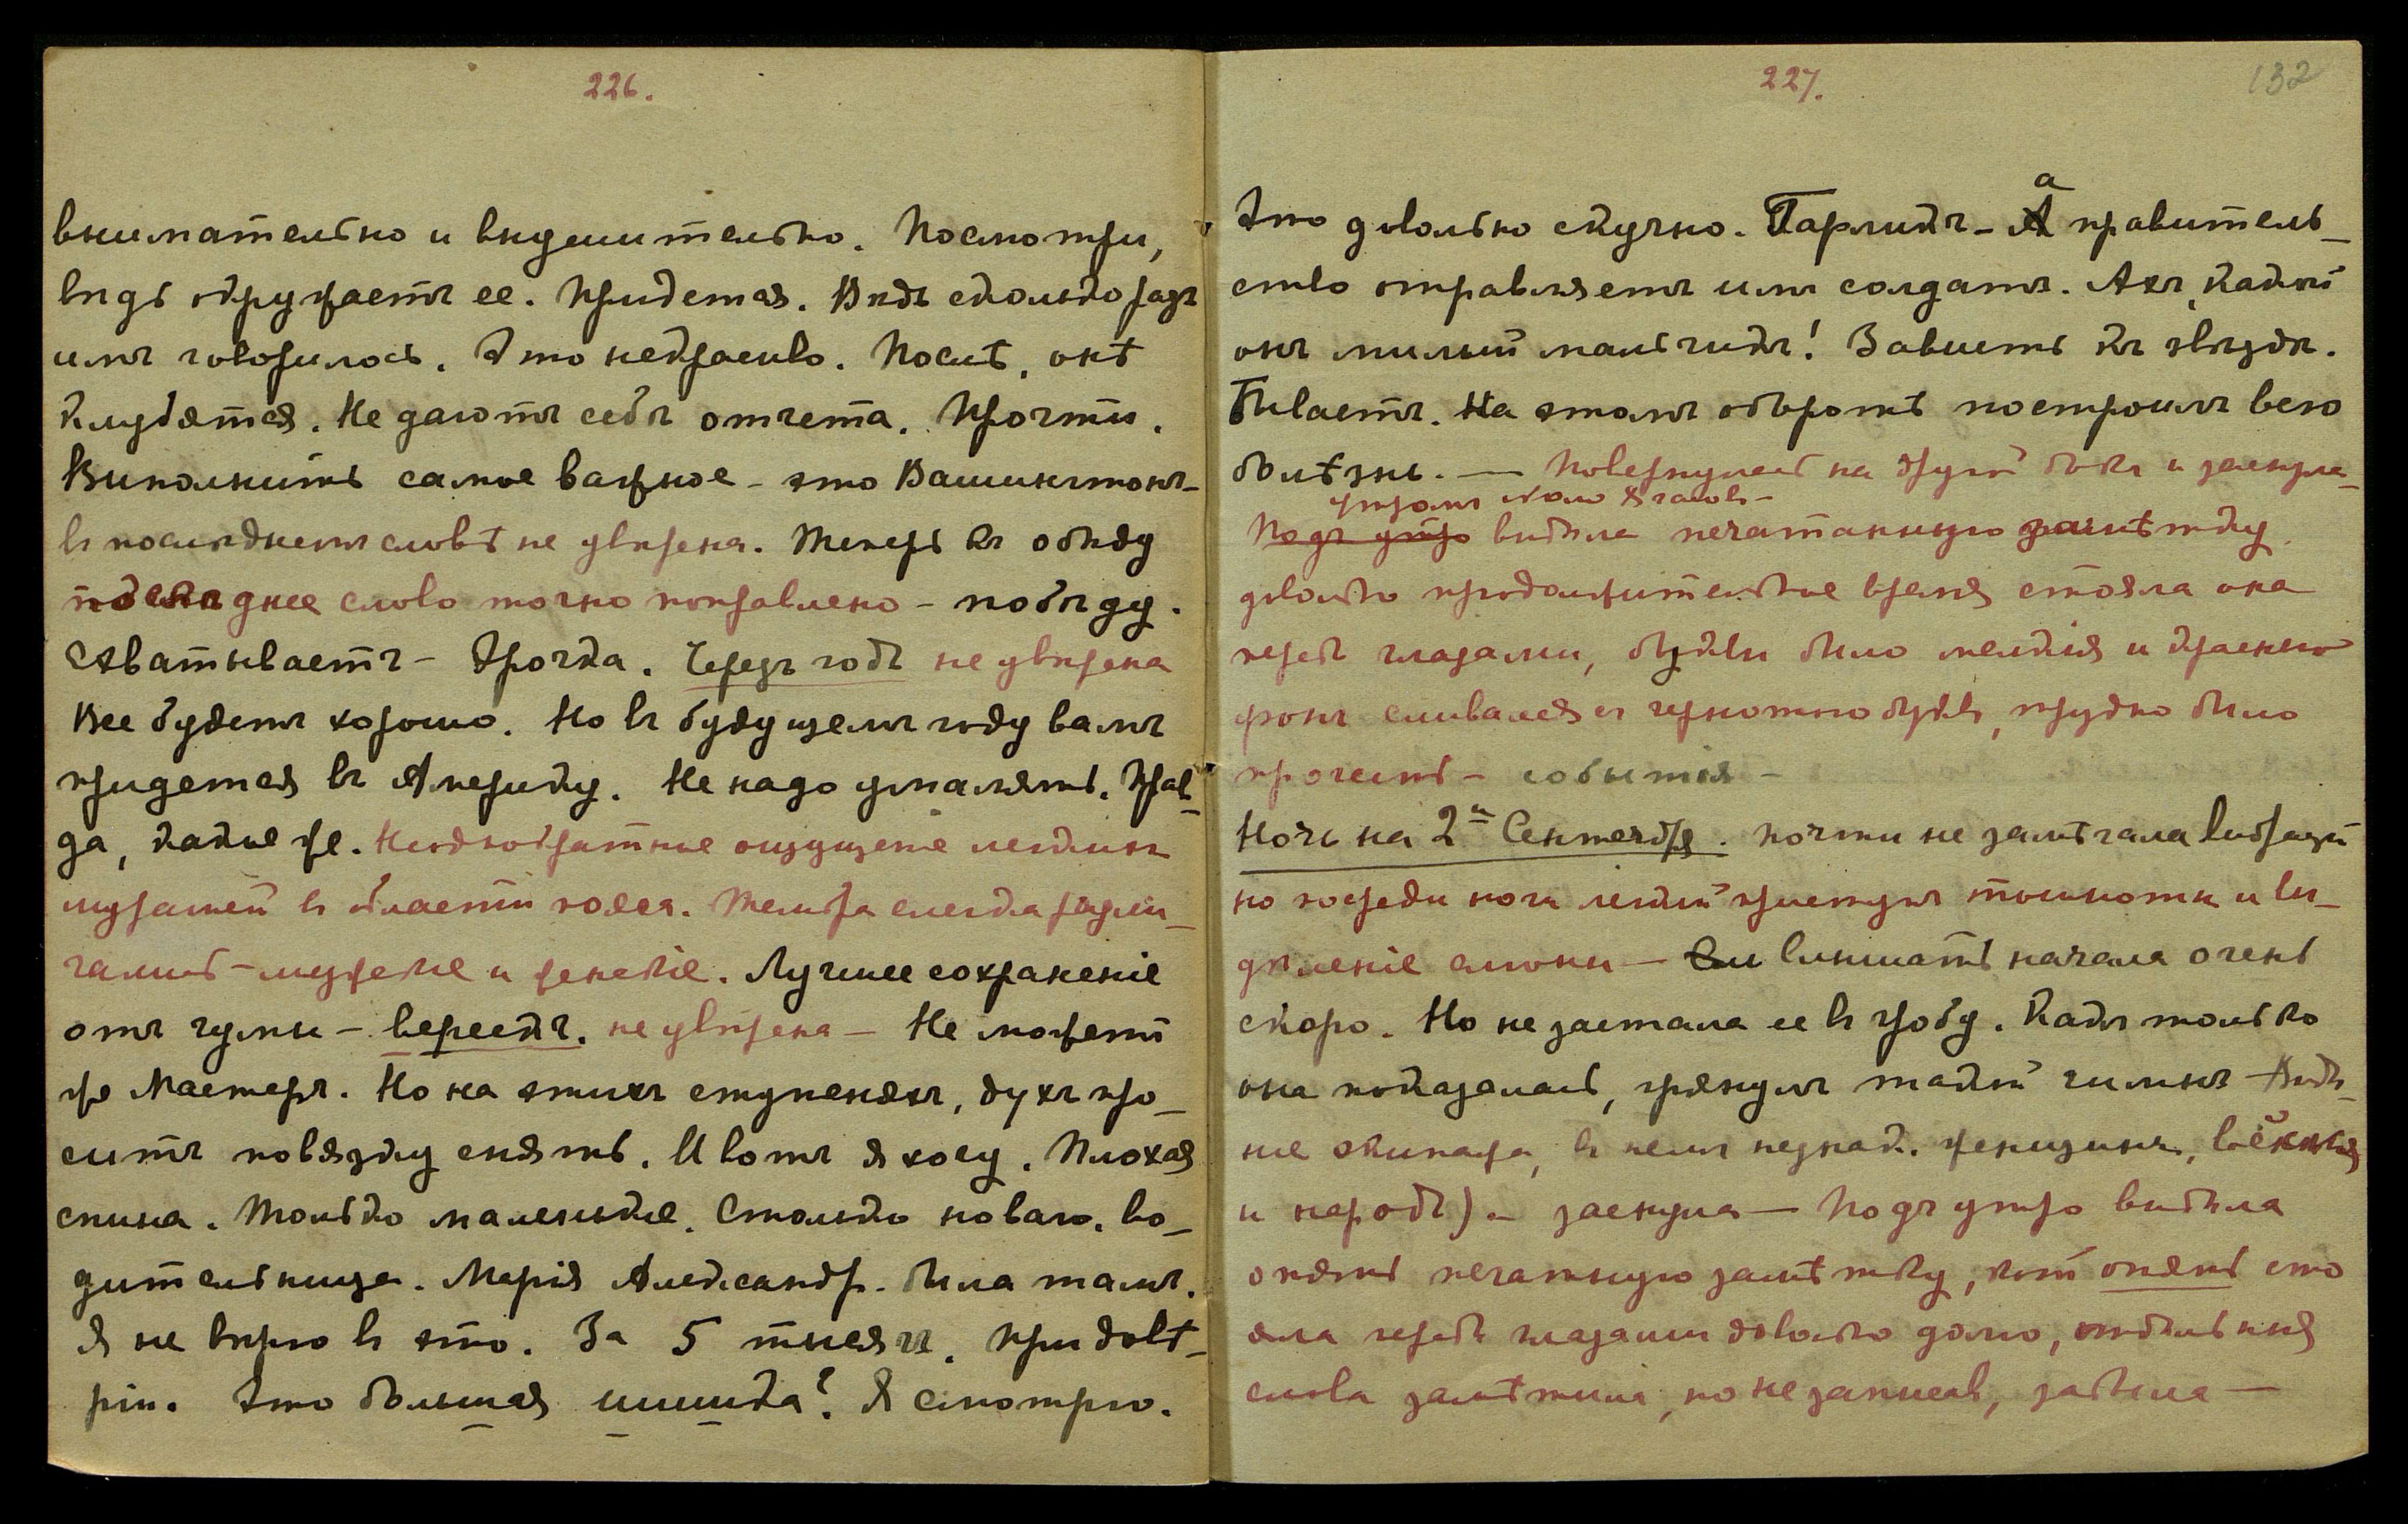 226.
внимательно и внушительно. Посмотри,
вѣдь окружаетъ ее. Придется. Вѣдь сколько разъ
имъ говорилось. Это некрасиво. Послѣ, онѣ
клубятся. Не даютъ себѣ отчета. Прочти.
Выполнить самое важное – это Вашингтонъ –
въ послѣднемъ словѣ не увѣрена. Теперь къ обѣду
послѣднее слово точно поправлено – победу.
Схватываетъ – Крочка. Черезъ годъ не увѣрена
Все будетъ хорошо. Но въ будущемъ году вамъ
придется въ Америку. Не надо умалять. Прав-
да, какие же. Неоднократные ощущение легкихъ
мурашей въ области пояса. Тембра слегка различ-
чались – мужские и женские. Лучшее сохраненіе
отъ чумы – верескъ. не увѣрена – Не можетъ
же Мастеръ. Но на этихъ ступеняхъ, духъ про-
ситъ повязку снять. И вотъ я хочу. Плохая
спина. Только маленькие. Столько новаго. Во-
дительница. Марія Александр. была тамъ.
Я не вѣрю въ это. За 5 тысячъ. При довѣ-
ріи. Это большая шишка? Я смотрю.
227.
132
Это довольно скучно. Гарликъ – а правитель-
ство отправляетъ имъ солдатъ. Ахъ, какой
онъ милый мальчикъ! Зависть къ звѣздѣ.
Бываетъ. На этомъ оборотѣ построилъ всю
болѣзнь. – Повернулась на другой бокъ и заснула –
утромъ около 8 часовъ –
Подъ утро видѣла печатанную замѣтку.
довольно продолжительное время стояла она
передъ глазами, буквы были мелкія и красный
фонъ сливался съ чернотою буквъ, трудно было
прочесть – события –
Ночь на 2е Сентября. почти не замѣчала вибрацій
но посреди ночи легкій приступъ тошноты и вы-
дѣленіе слюны – внимать начала очень
скоро. Но не застала ее въ гробу. Какъ только
она показалась, грянулъ такой гимнъ – Видѣ-
ние экипажа, въ немъ незнак. женщина, военные
и народъ) – заснула – Подъ утро видѣла
опять печатную замѣтку, кот опять сто
яла передъ глазами довольно долго, отдѣльныя
слова замѣтила, но не записавъ, забыла –